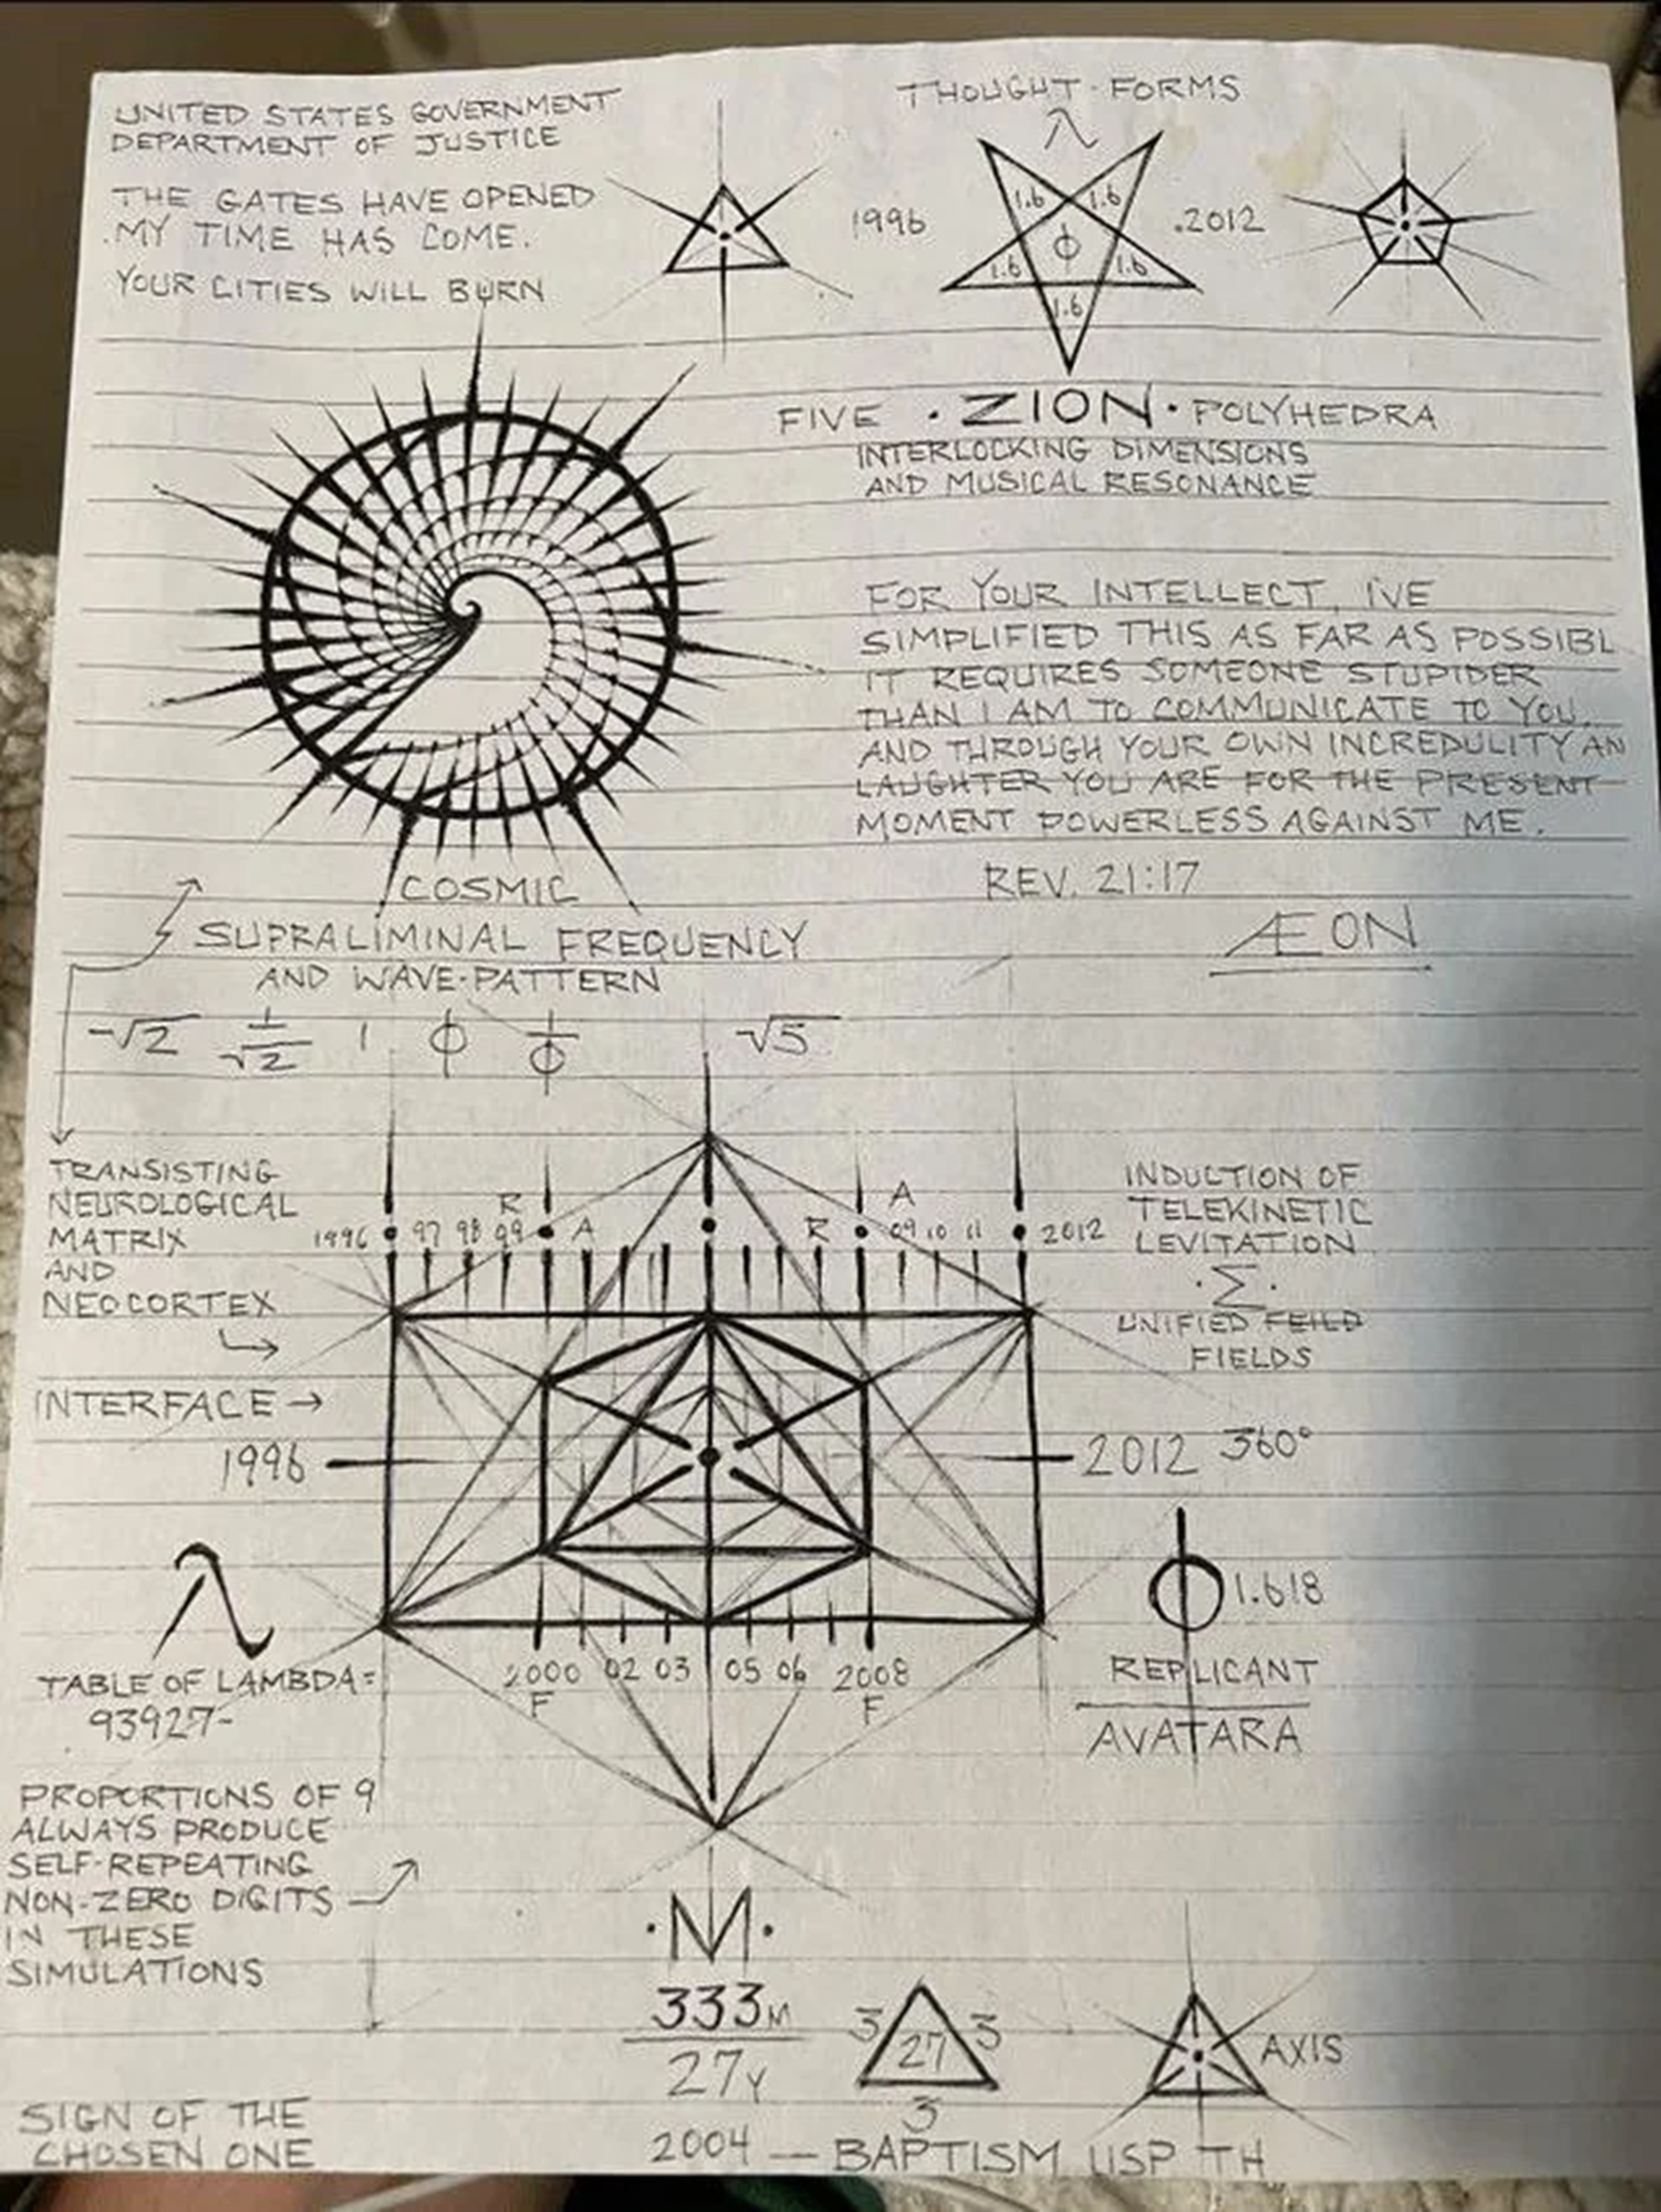 UNITED STATES GOVERNMENT
DEPARTMENT OF JUSTICE
THE GATES HAVE OPENED
MY TIME HAS COME.
YOUR CITIES WILL BURN
THOUGHT · FORMS
λ
1996
1.6 1.6
.2012
φ
1.6 1.6
1.6
FIVE · ZION · POLYHEDRA
INTERLOCKING DIMENSIONS
AND MUSICAL RESONANCE
FOR YOUR INTELLECT, I'VE
SIMPLIFIED THIS AS FAR AS POSSIBL
IT REQUIRES SOMEONE STUPIDER
THAN I AM TO COMMUNICATE TO YOU,
AND THROUGH YOUR OWN INCREDULITY AN
LAUGHTER YOU ARE FOR THE PRESENT
MOMENT POWERLESS AGAINST ME.
REV. 21:17
ÆON
COSMIC
SUPRALIMINAL FREQUENCY
AND WAVE-PATTERN
-√2 1/√2 1 φ 1/φ √5
TRANSISTING
NEUROLOGICAL
MATRIX
AND
NEOCORTEX
INTERFACE →
R A
1996 97 98 99 A R 09 10 11 2012
INDUCTION OF
TELEKINETIC
LEVITATION
·Σ·
UNIFIED FEILD
FIELDS
1996
2012 360°
λ
φ 1.618
TABLE OF LAMBDA=
93927-
2000 02 03 05 06 2008
F F
REPLICANT
AVATARA
PROPORTIONS OF 9
ALWAYS PRODUCE
SELF-REPEATING
NON-ZERO DIGITS
IN THESE
SIMULATIONS
·M·
333M
27Y
3 27 3
3
AXIS
SIGN OF THE
CHOSEN ONE
2004 — BAPTISM USP TH